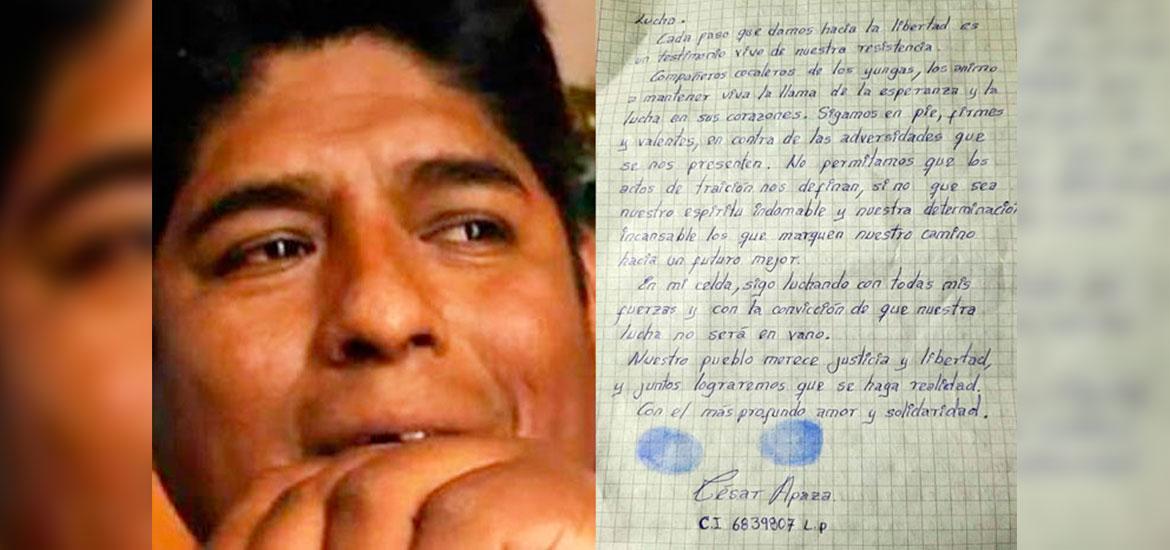 Lucho.
Cada paso que damos hacia la libertad es
un testimonio vivo de nuestra resistencia.
Compañeros cocaleros de los yungas, los animo
a mantener viva la llama de la esperanza y la
lucha en sus corazones. Sigamos en pie, firmes
y valentes, en contra de las adversidades que
se nos presenten. No permitamos que los
actos de traición nos definan, si no que sea
nuestro espíritu indomable y nuestra determinación
incansable los que marquen nuestro camino
hacia un futuro mejor.
En mi celda, sigo luchando con todas mis
fuerzas y con la convicción de que nuestra
lucha no será en vano.
Nuestro pueblo merece justicia y libertad,
y juntos lograremos que se haga realidad.
Con el más profundo amor y solidaridad.
César Apaza
C.I 6839807 L.p